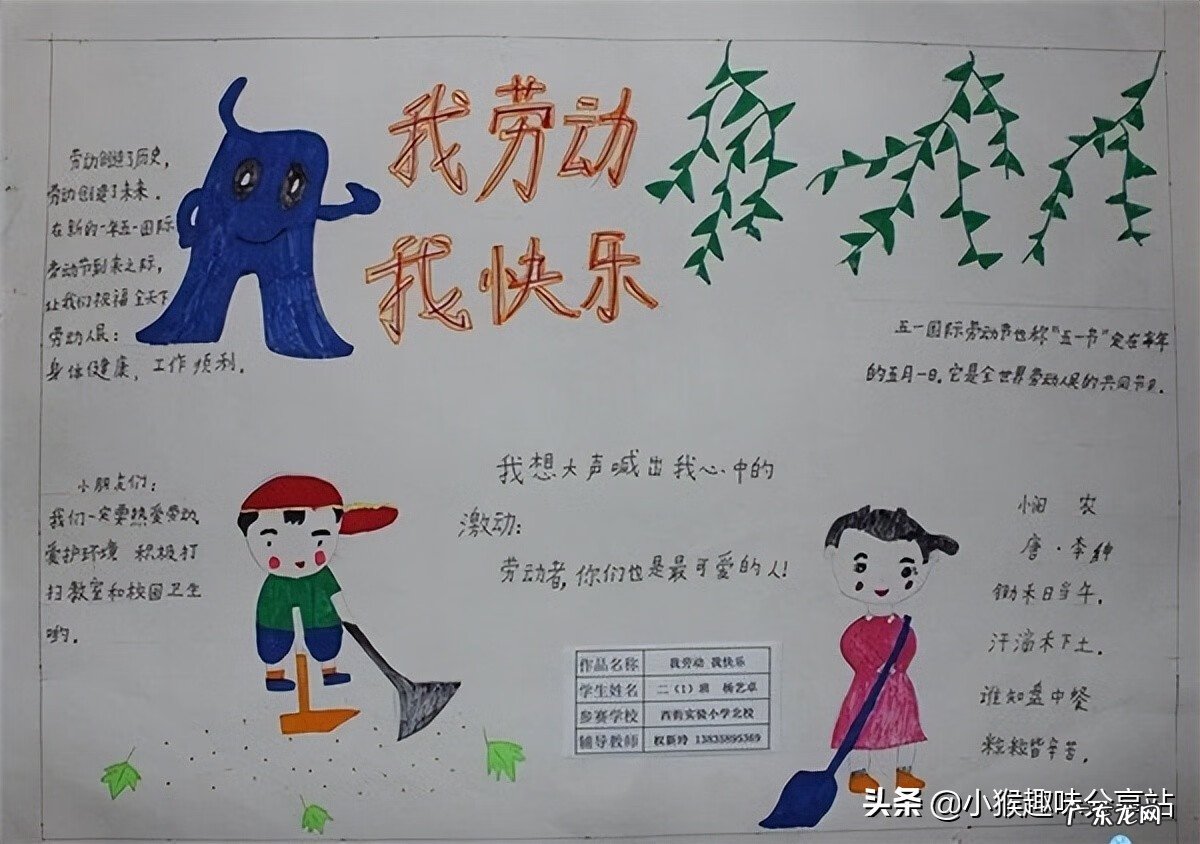 我劳动
我快乐
劳动创造了历史，
劳动创造了未来．
在新的一年五一国际
劳动节到来之际，
让我们祝福全天下
劳动人民：
身体健康，工作顺利．
五一国际劳动节也称"五一节"定在每年
的五月一日．它是全世界劳动人民的共同节日．
小朋友们：
我们一定要热爱劳动
爱护环境 积极打
扫教室和校园卫生
哟．
我想大声喊出我心中的
激动：
劳动者，你们也是最可爱的人！
悯 农
唐·李绅
锄禾日当午．
汗滴禾下土．
谁知盘中餐
粒粒皆辛苦．
作品名称 我劳动 我快乐
学生姓名 二（1）班 杨艺卓
参赛学校 西街实验小学北校
辅导教师 权新玲 13835895369
头条 @小猴趣味分享站
广东龙网